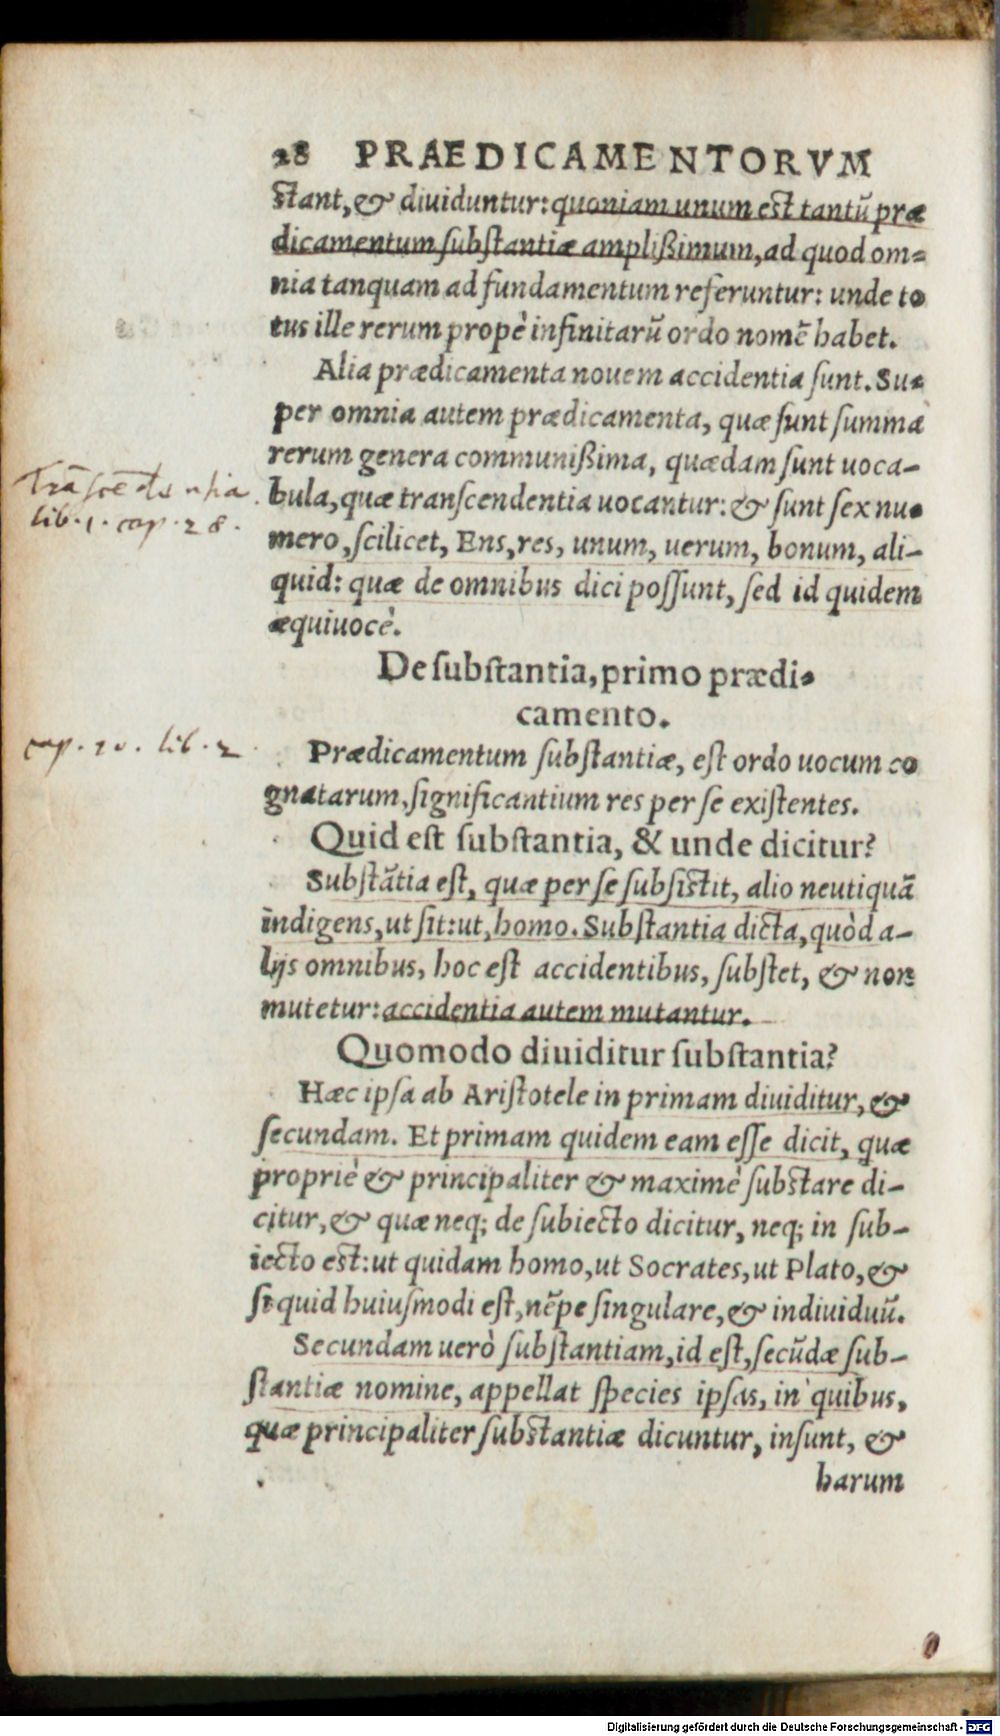 28 PRAEDICAMENTORVM
stant, & diuiduntur: quoniam unum est tantũ præ
dicamentum substantiæ amplißimum, ad quod om-
nia tanquam ad fundamentum referuntur: unde to
tus ille rerum propè infinitarũ ordo nomẽ habet.
Alia prædicamenta nouem accidentia sunt. Su-
per omnia autem prædicamenta, quæ sunt summa
rerum genera communißima, quædam sunt uoca-
Trãscẽdẽtia
bula, quæ transcendentia uocantur: & sunt sex nu-
lib. 1. cap. 28.
mero, scilicet, Ens, res, unum, uerum, bonum, ali-
quid: quæ de omnibus dici possunt, sed id quidem
æquiuocè.
De substantia, primo prædi-
camento.
cap. 20. lib. 2
Prædicamentum substantiæ, est ordo uocum co
gnatarum, significantium res per se existentes.
Quid est substantia, & unde dicitur?
Substãtia est, quæ per se subsistit, alio neutiquã
indigens, ut sit: ut, homo. Substantia dicta, quòd a-
lijs omnibus, hoc est accidentibus, substet, & non
mutetur: accidentia autem mutantur.
Quomodo diuiditur substantia?
Hæc ipsa ab Aristotele in primam diuiditur, &
secundam. Et primam quidem eam esse dicit, quæ
propriè & principaliter & maximè substare di-
citur, & quæ neq; de subiecto dicitur, neq; in sub-
iecto est: ut quidam homo, ut Socrates, ut Plato, &
si quid huiusmodi est, nẽpe singulare, & indiuiduũ.
Secundam uerò substantiam, id est, secũdæ sub-
stantiæ nomine, appellat species ipsas, in quibus,
quæ principaliter substantiæ dicuntur, insunt, &
harum
Digitalisierung gefördert durch die Deutsche Forschungsgemeinschaft - DFG